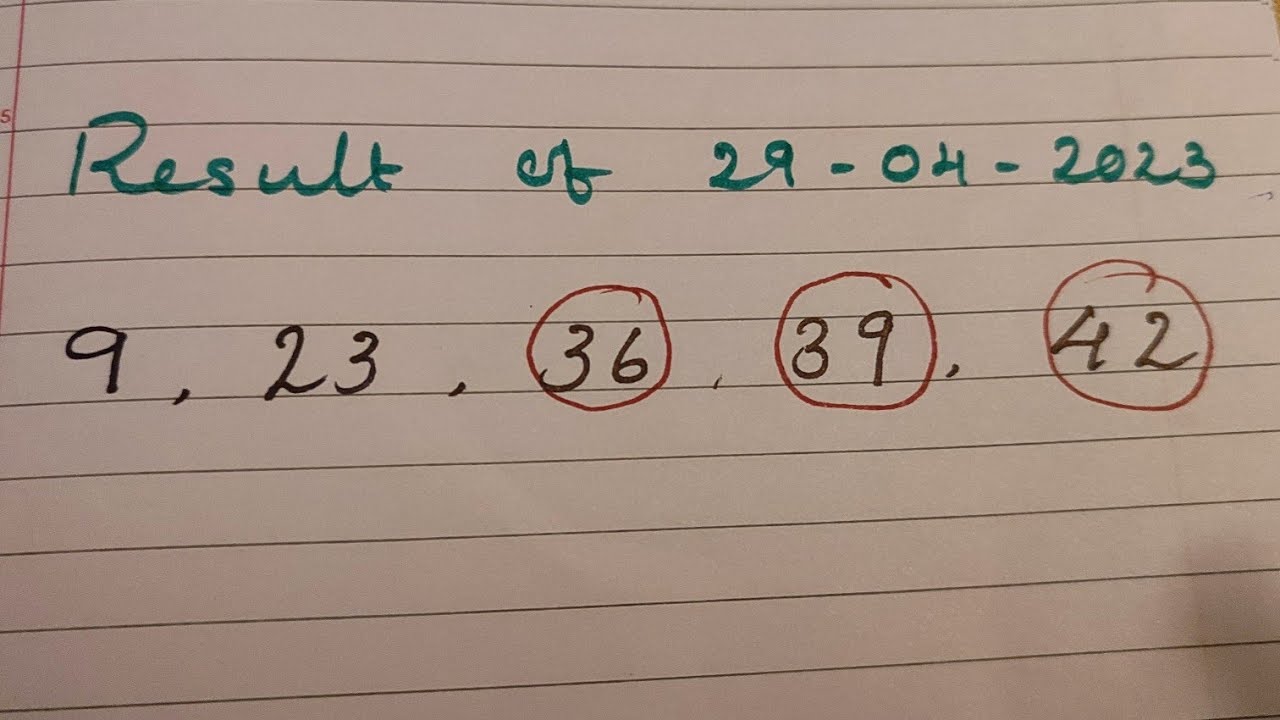 Result of 29-04-2023
9, 23, 36, 39, 42